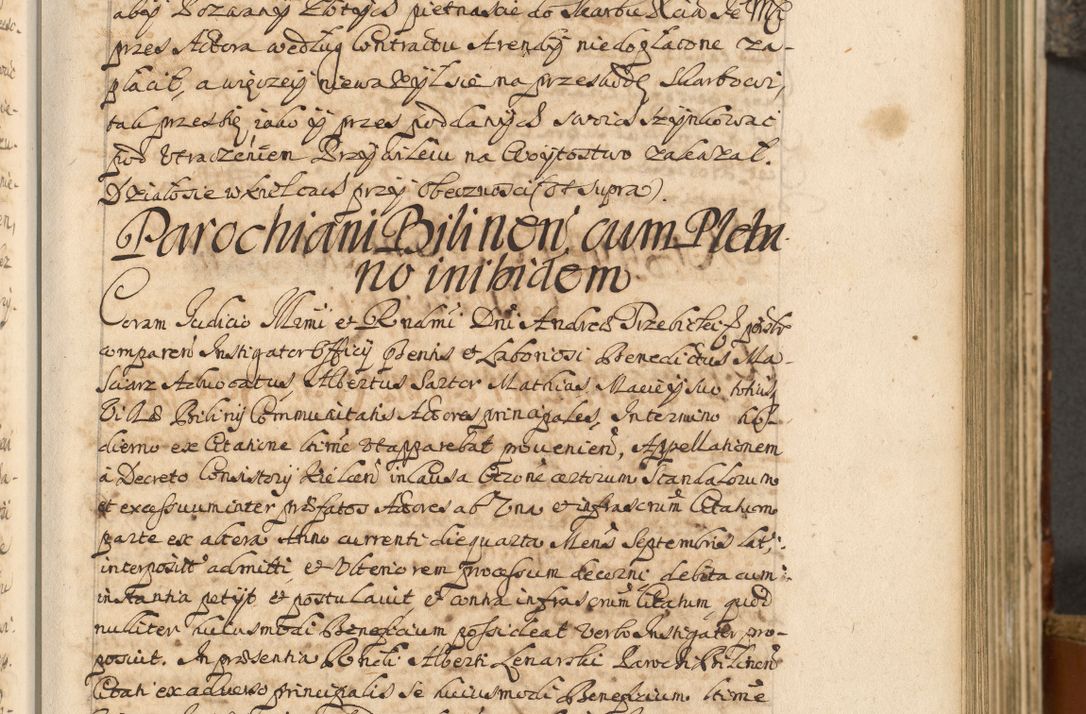 abÿ Pozwanÿ złotÿch piętnascie do Skarbu
przes Actora według Contractu Arendÿ niedopłacone za-
płacił, a więczeÿ niewazÿł sie na przeskodę Skarbowi,
tak przes się, iako ÿ przes poddanÿch swoich szÿnkowac
pod utraczeniem Przÿwileiu na Woÿtostwo zakazał.
Działosie w kielcach przÿ obecznosci (ut supra).
Parochiani Bilinen. cum Pleba
no inibidem
Coram Judicio Illmi et Rndmi Dni Andreæ Trzebicki
comparen Instigator Officÿ Penis et Laboriosi Benedictus Ma-
Advocatus, Albertus Sartor Mathias totius
Villæ Bilinÿ Communitatis Actores principales, In termino ho-
dierno ex Citatione ltime ut apparebat provenien, Appellationem
à Decreto Consistorÿ Kielcen in causa certorum Scandalorum
et excessuum inter præfatos Actores ab Una et infrascrum Citatum
parte ex altera Anno currenti die quarta Mens Septembris lat,
interposit admitti, et Ulteriorem processum decerni debita cum
instantia petÿt et postulavit et contra infrascrum Citatum, quod
nulliter huiusmodi Beneficium possideat verbo Instigator pro-
posuit. In præsentia Alberti Lenarski Parochi Bilinen
Citati ex adverso principalis se huiusmodi Beneficium ltime